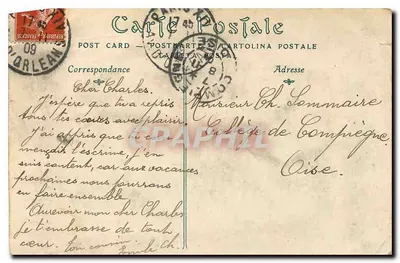 Carte Postale
POST CARD — POSTKARTE — CARTOLINA POSTALE
Correspondance
Adresse
Cher Charles.
J'espère que tu a repris
tous tes cours avec plaisir.
J'ai appris que tu
menais l'escrime, j'en
suis content, car aux vacances
prochaines nous pourrons
en faire ensemble.
Aurevoir mon cher Charles
je t'embrasse de tout
cœur. Ton cousin
Monsieur Ch. Sommaire
Collège de Compiègne
Oise.
17 45
09
D'ORLEANS
17 45
CPAPHIL